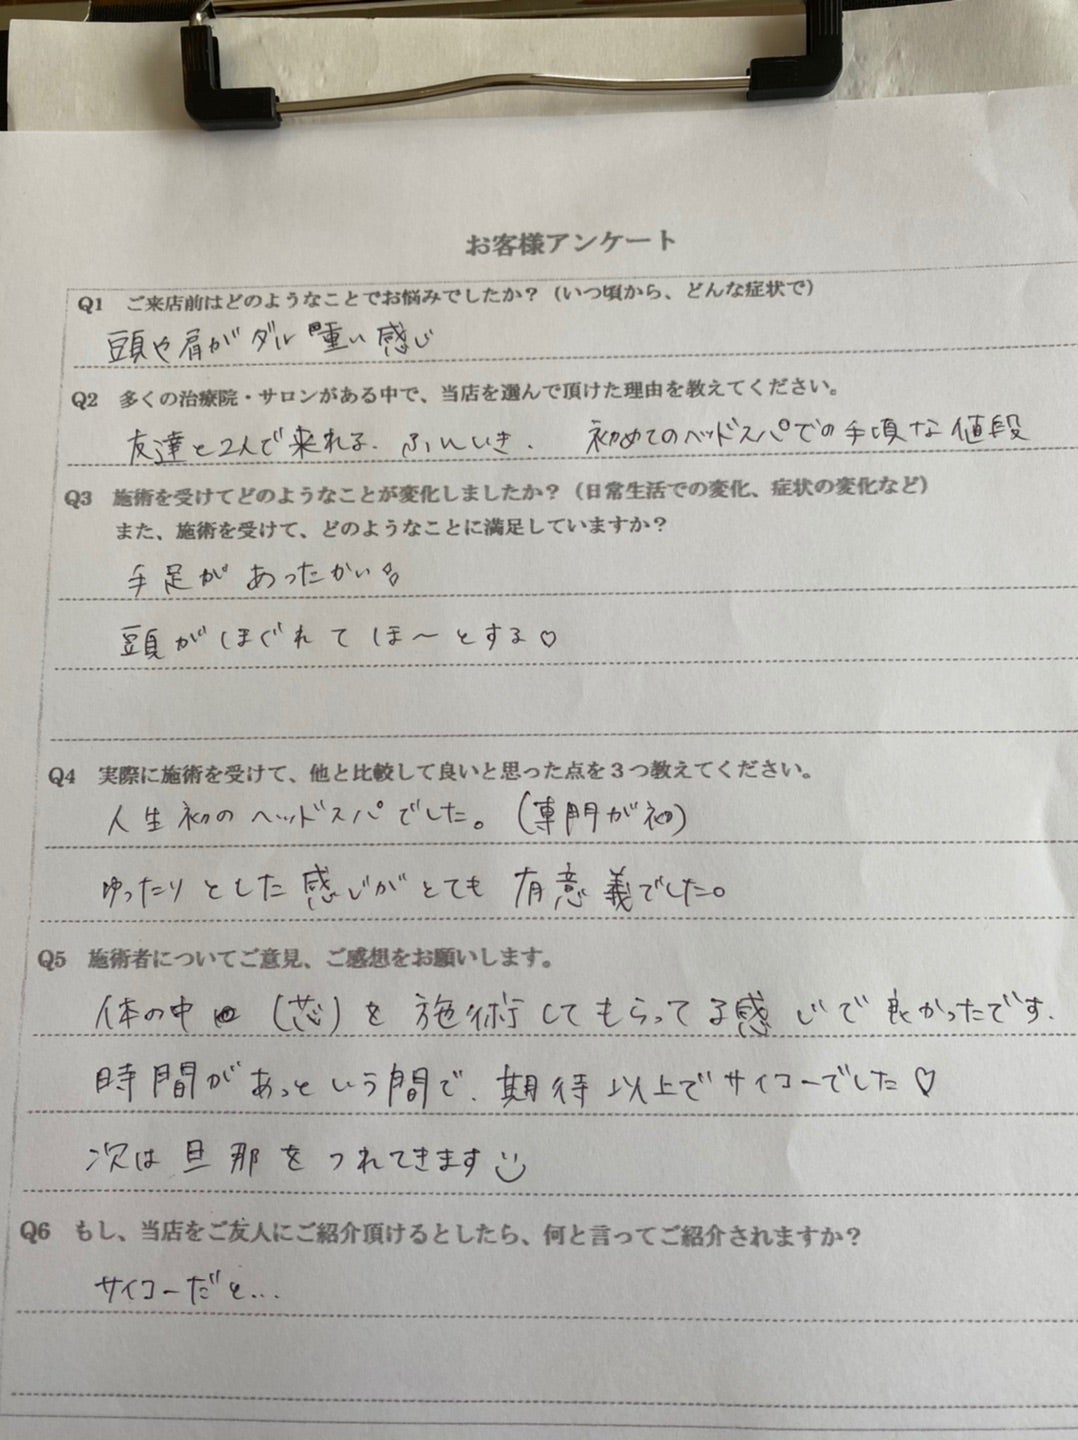 お客様アンケート
Q1 ご来店前はどのようなことでお悩みでしたか？（いつ頃から、どんな症状で）
頭や肩がダル重い感じ
Q2 多くの治療院・サロンがある中で、当店を選んで頂けた理由を教えてください。
友達と2人で来れる. ふんいき. 初めてのヘッドスパでの手頃な値段
Q3 施術を受けてどのようなことが変化しましたか？（日常生活での変化、症状の変化など）
また、施術を受けて、どのようなことに満足していますか？
手足があったかい
頭がほぐれてほ〜とする♡
Q4 実際に施術を受けて、他と比較して良いと思った点を３つ教えてください。
人生初のヘッドスパでした。（専門が初）
ゆったりとした感じがとても有意義でした。
Q5 施術者についてご意見、ご感想をお願いします。
体の中（芯）を施術してもらってる感じで良かったです.
時間があっという間で、期待以上でサイコーでした♡
次は旦那をつれてきます
Q6 もし、当店をご友人にご紹介頂けるとしたら、何と言ってご紹介されますか？
サイコーだと...